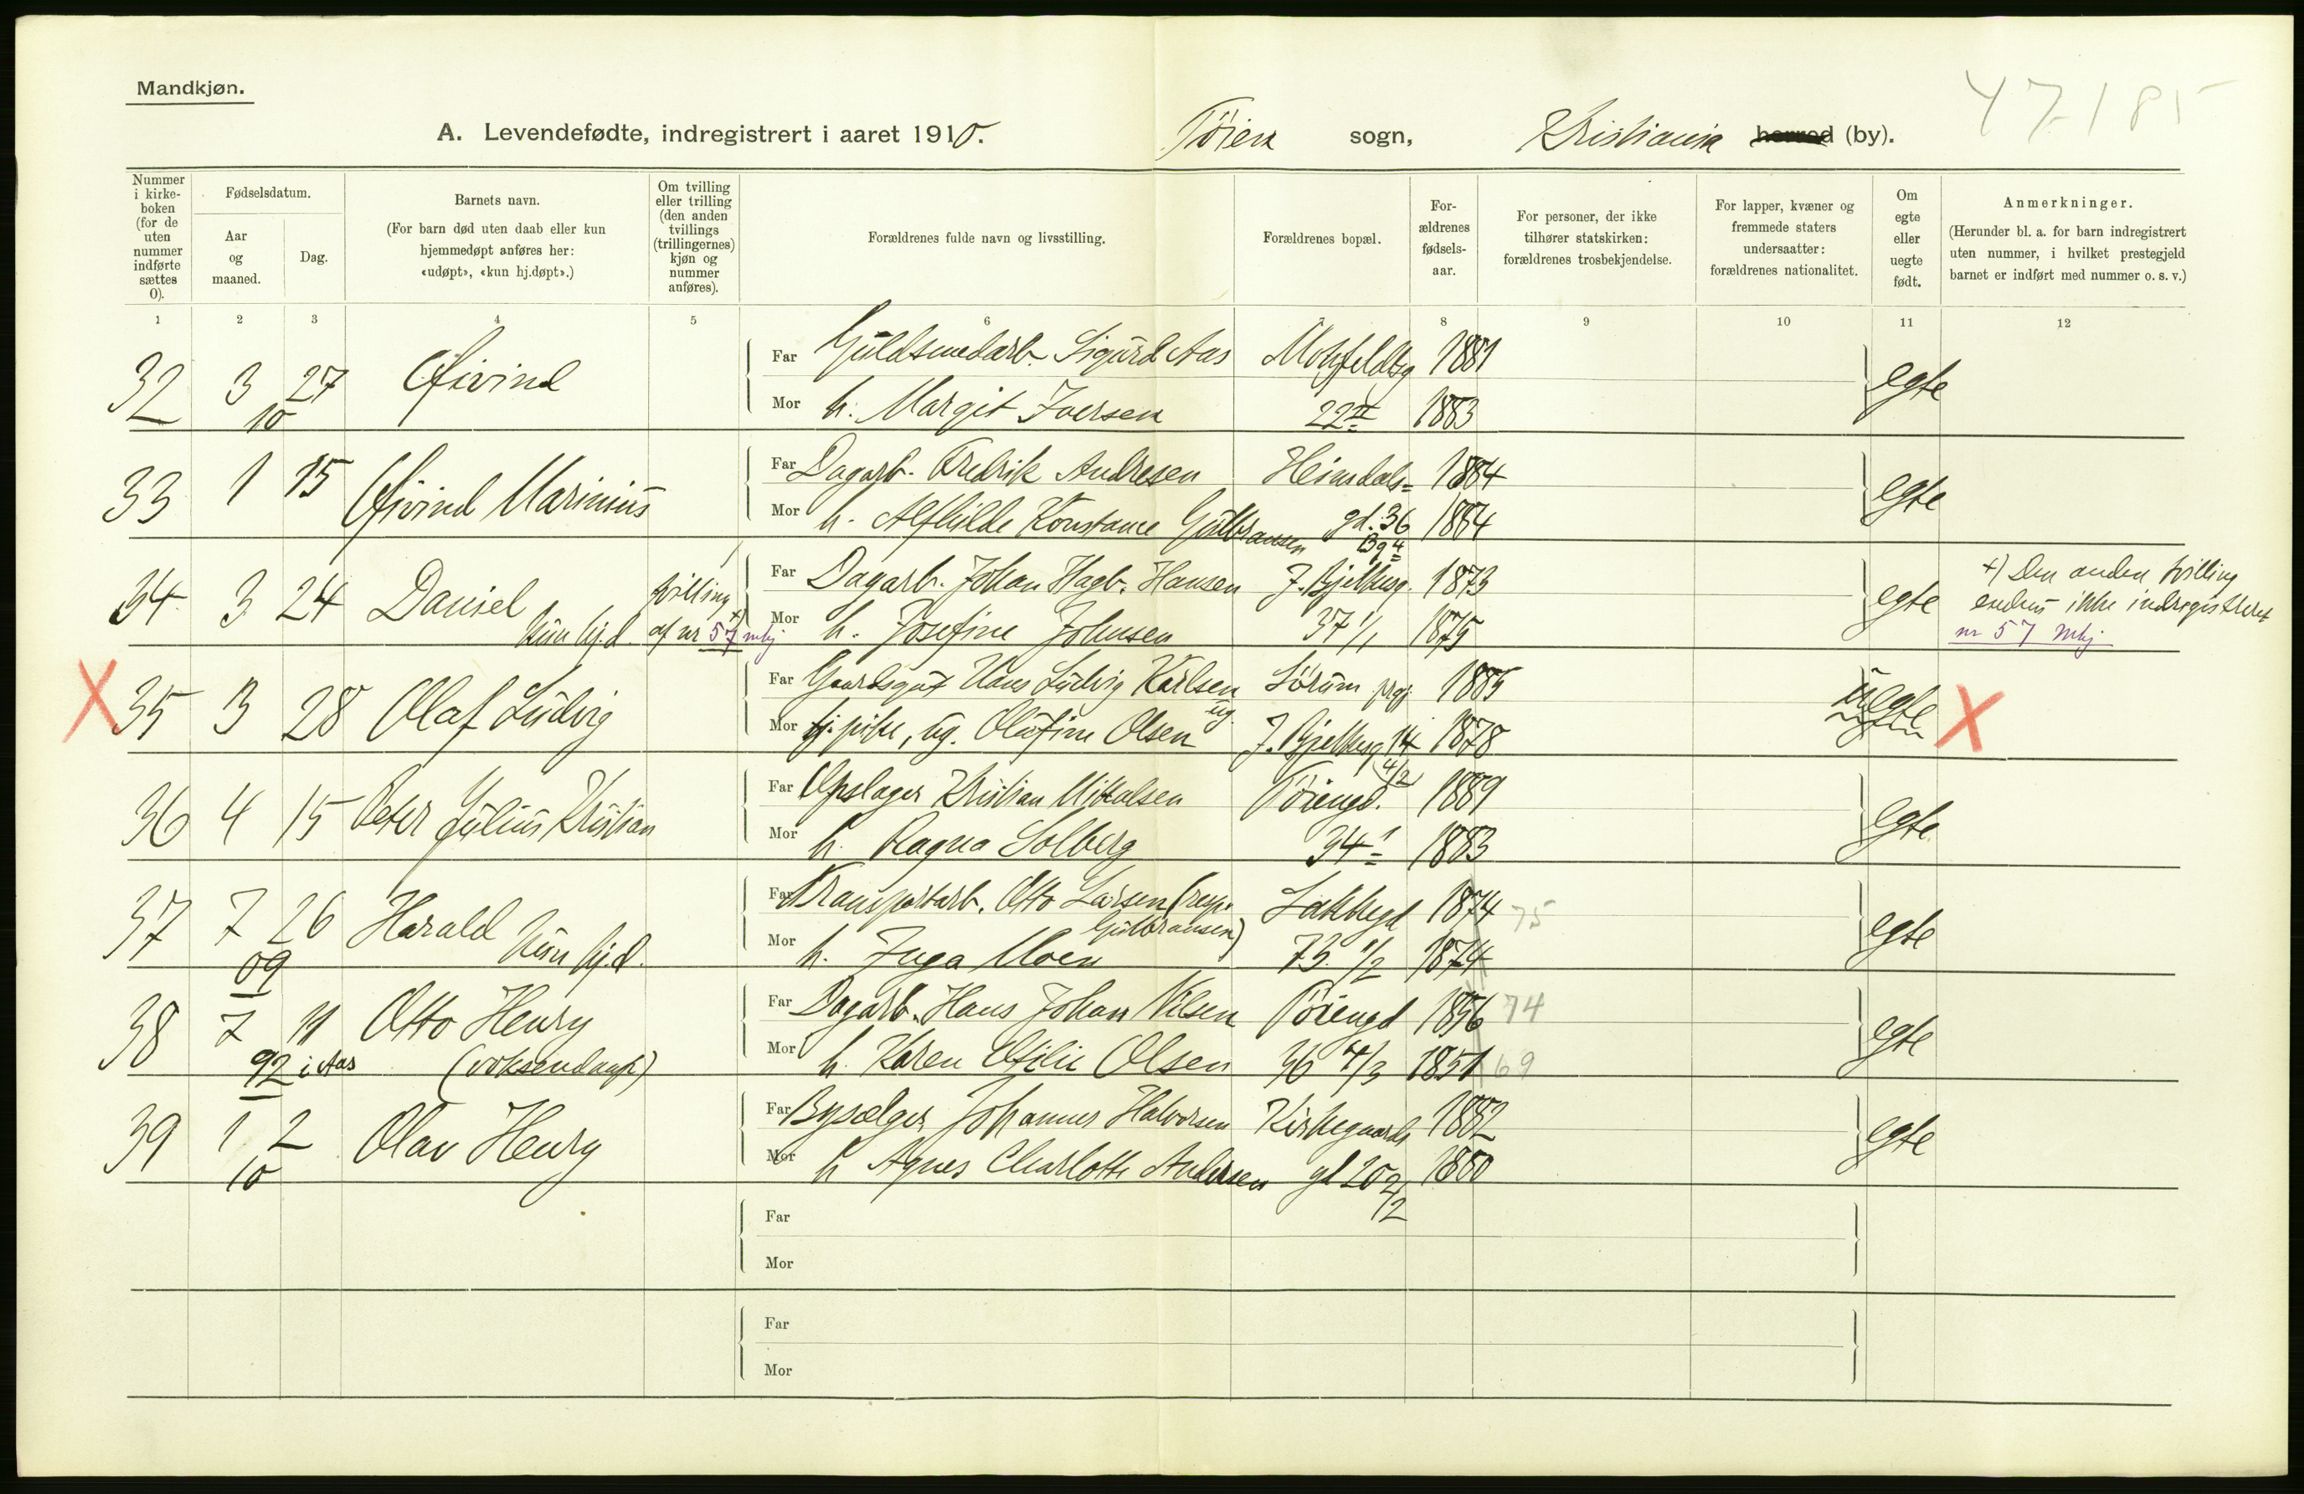 Mandkjøn.
47-185
A. Levendefødte, indregistrert i aaret 1910. Tøien sogn, Kristiania herred (by).
Nummer i kirke-boken (for de uten nummer indførte sættes 0).
Fødselsdatum.
Aar og maaned.
Dag.
Barnets navn.
(For barn død uten daab eller kun hjemmedøpt anføres her: «udøpt», «kun hj.døpt».)
Om tvilling eller trilling (den anden tvillings (trillingernes) kjøn og nummer anføres).
Forældrenes fulde navn og livsstilling.
Forældrenes bopæl.
For-ældrenes fødsels-aar.
For personer, der ikke tilhører statskirken: forældrenes trosbekjendelse.
For lapper, kvæner og fremmede staters undersaatter: forældrenes nationalitet.
Om egte eller uegte født.
Anmerkninger.
(Herunder bl. a. for barn indregistrert uten nummer, i hvilket prestegjeld barnet er indført med nummer o. s. v.)
1 2 3 4 5 6 7 8 9 10 11 12
32 3 27 Øivind Far Guldsmedarb. Sigurd Aas Motzfeldtsg 1881 egte
10 Mor h. Margit Iversen 22 II 1883
33 1 15 Øivind Marinius Far Dagarb. Fredrik Andresen Heimdals= 1884 egte
Mor h. Alfhilde Konstance Gulbransen gd. 36 1884
Bg 4
34 3 24 Daniel tvilling +) Far Dagarb. Johan Hagb. Hansen J. Bjelkesg. 1873 egte +) Den anden tvilling
Kun hj.d. af nr 57 mkj Mor h. Josefine Johnsen 37 1/1 1875 endnu ikke indregistreret
nr 57 mkj
X 35 3 28 Olaf Ludvig Far Gaardsgut Hans Ludvig Karlsen ug. Sørum prgj 1885 uegte X
Mor tj. pike, ug. Olufine Olsen J. Bjelkesg 14 1878
4/2
36 4 15 Peter Julius Kristian Far Opslager Kristian Mikalsen Tøiengd. 1889 egte
Mor h. Ragna Solberg 34 1 1883
37 7 26 Harald Far Transportarb. Otto Larsen (resp. Lakkegd 1874 75 egte
09 Kun hj.d. Gulbransen)
Mor h. Inga Moen 73. 1/2 1874
38 7 11 Otto Henry Far Dagarb. Hans Johan Nilsen Tøiengd 1856 74 egte
92 i Aas (voksendaap) Mor h. Karen Otilie Olsen 36 4/3 1851 69
39 1 2 Olav Henry Far Bysælger Johannes Halvorsen Kirkegaards 1882 egte
10 Mor h Agnes Charlotte Andersen gd 20 2/2 1880
Far
Mor
Far
Mor